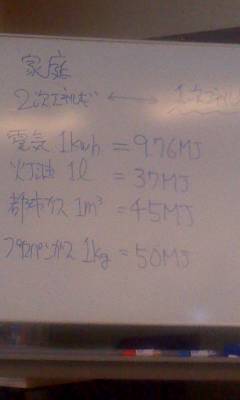 家庭
2次エネルギー ←→ 1次エネル
電気 1kwh = 9.76MJ
灯油 1l = 37MJ
都市ガス 1m³ = 45MJ
プロパンガス 1kg = 50MJ